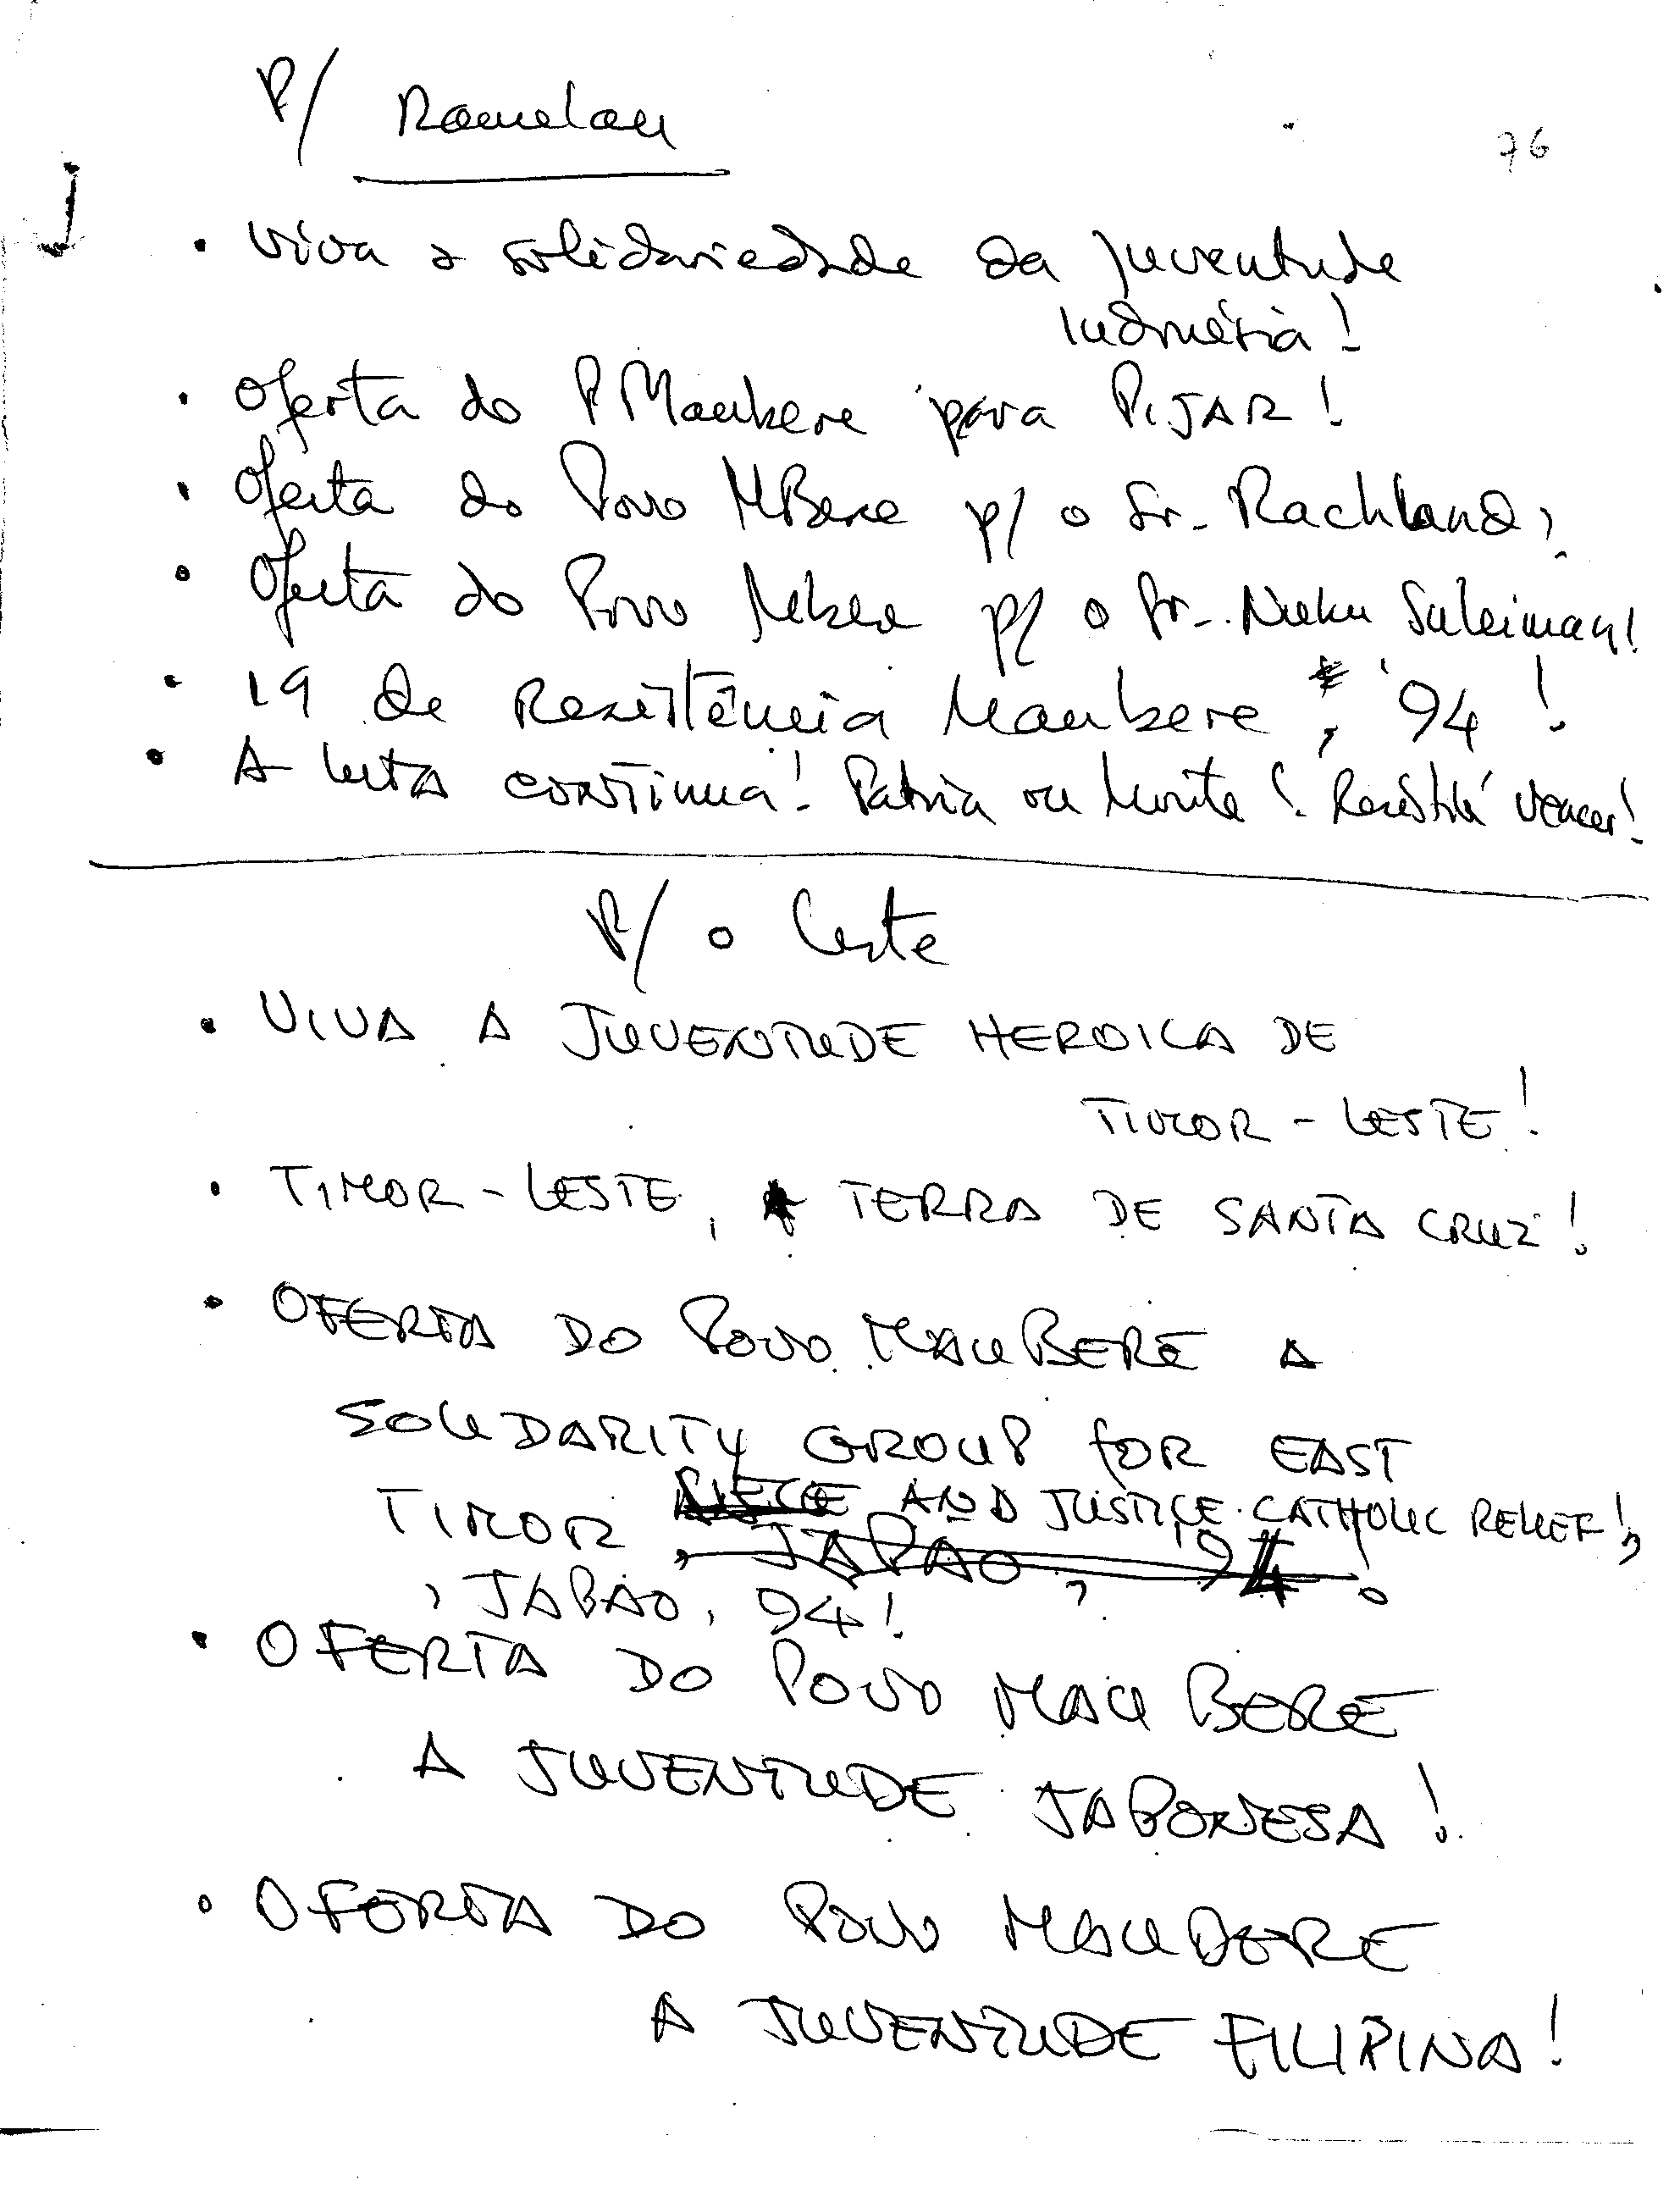 P/ Ramelau
76
• Viva a solidariedade da Juventude
Indonésia!
• Oferta do P Maubere para PIJAR!
• Oferta do Povo MBere p/ o Sr. Rachland,
• Oferta do Povo Mbere p/ o Sr. Nuku Suleiman!
• 19 de Resistência Maubere, 94!
• A luta continua! Pátria ou Morte! Resistir é Vencer!
P/ o Leste
• VIVA A JUVENTUDE HEROICA DE
TIMOR-LESTE!
• TIMOR-LESTE, TERRA DE SANTA CRUZ!
• OFERTA DO POVO MAUBERE A
SOLIDARITY GROUP FOR EAST
TIMOR AND JUSTICE CATHOLIC RELIEF!,
, JAPÃO, 94!
, JAPÃO, 94!
• OFERTA DO POVO MAUBERE
A JUVENTUDE JAPONESA!
• OFERTA DO POVO MAUBERE
A JUVENTUDE FILIPINA!